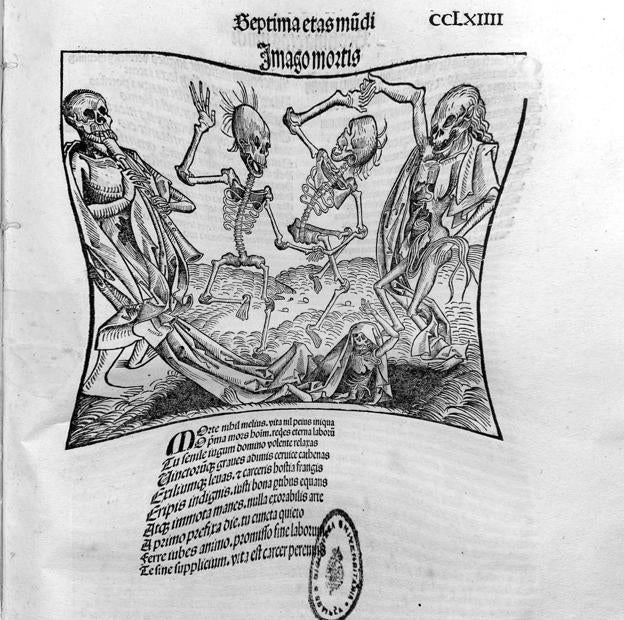 Septima etas mũdi
CCLXIIII
Imago mortis
Morte nihil melius. vita nil peius iniqua
Opma mors hoim. reqes eterna laborũ
Tu senile iugum domino volente relaxas
Vinctorũqꝫ graues adimis ceruice cathenas
Exiliumqꝫ leuas. ⁊ carceris hostia frangis
Eripis indignis. iusti bona ꝑtibus equans
Atqꝫ immota manes. nulla exorabilis arte
A primo prefixa die. tu cuncta quieto
Ferre iubes animo. promisso fine laborum
Te sine supplicium. vita est carcer perennis